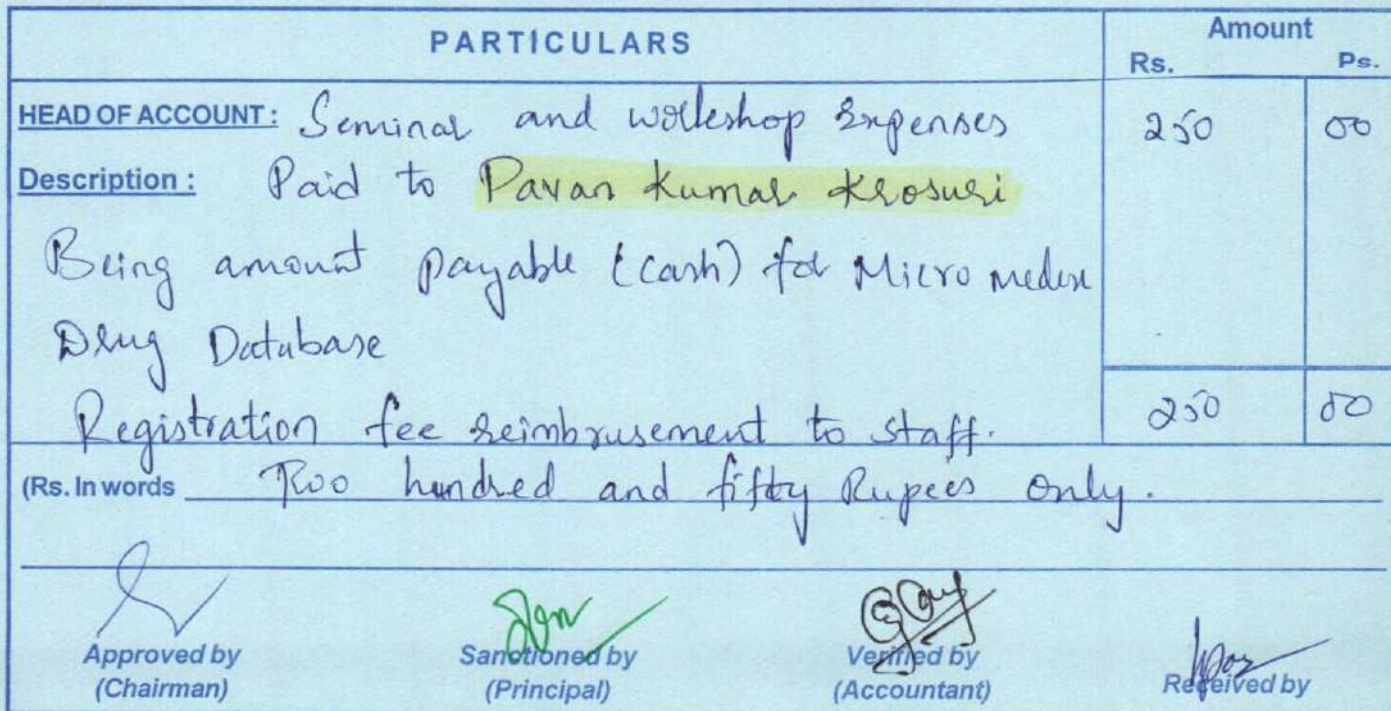 PARTICULARS Amount
Rs. Ps.
HEAD OF ACCOUNT : Seminar and workshop Expenses 250 00
Description : Paid to Pavan Kumar Krosuri
Being amount payable (cash) for Micro medex
Drug Database
Registration fee reimbrusement to staff. 250 00
(Rs. In words Two hundred and fifty Rupees only.
Approved by Sanctioned by Verified by Received by
(Chairman) (Principal) (Accountant)